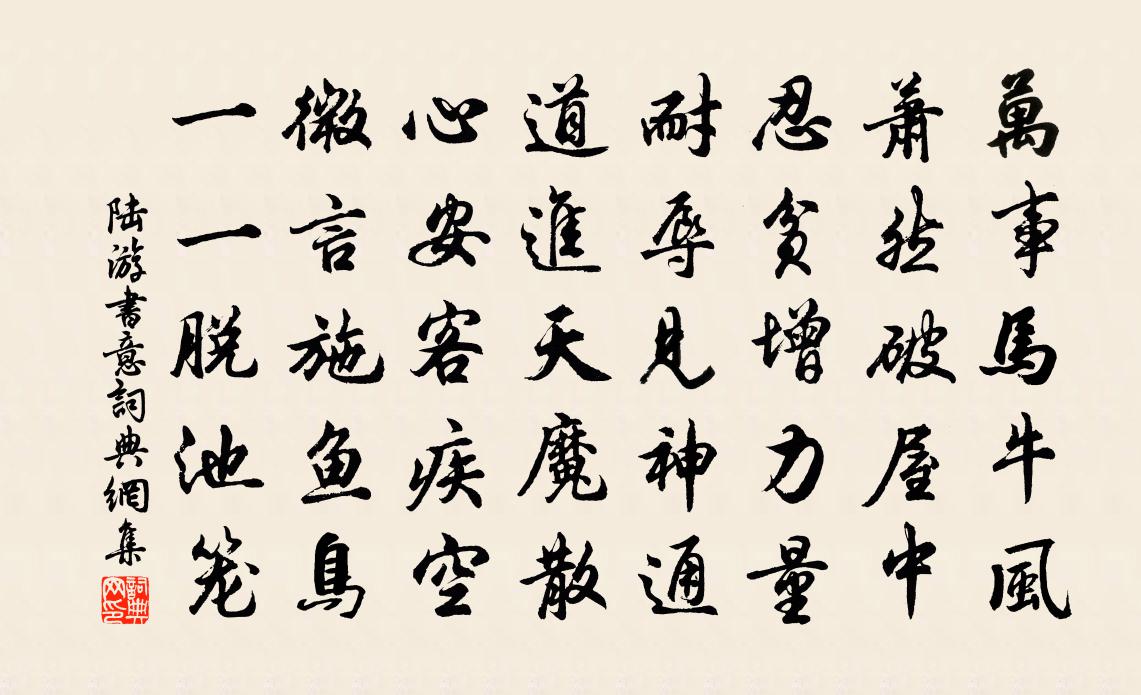 萬事馬牛風
蕭然破屋中
忍貧增力量
耐辱見神通
道進天魔散
心安客疾空
微言施鱼鳥
一一脱池笼
陸游書意詞典網集
詞典网印